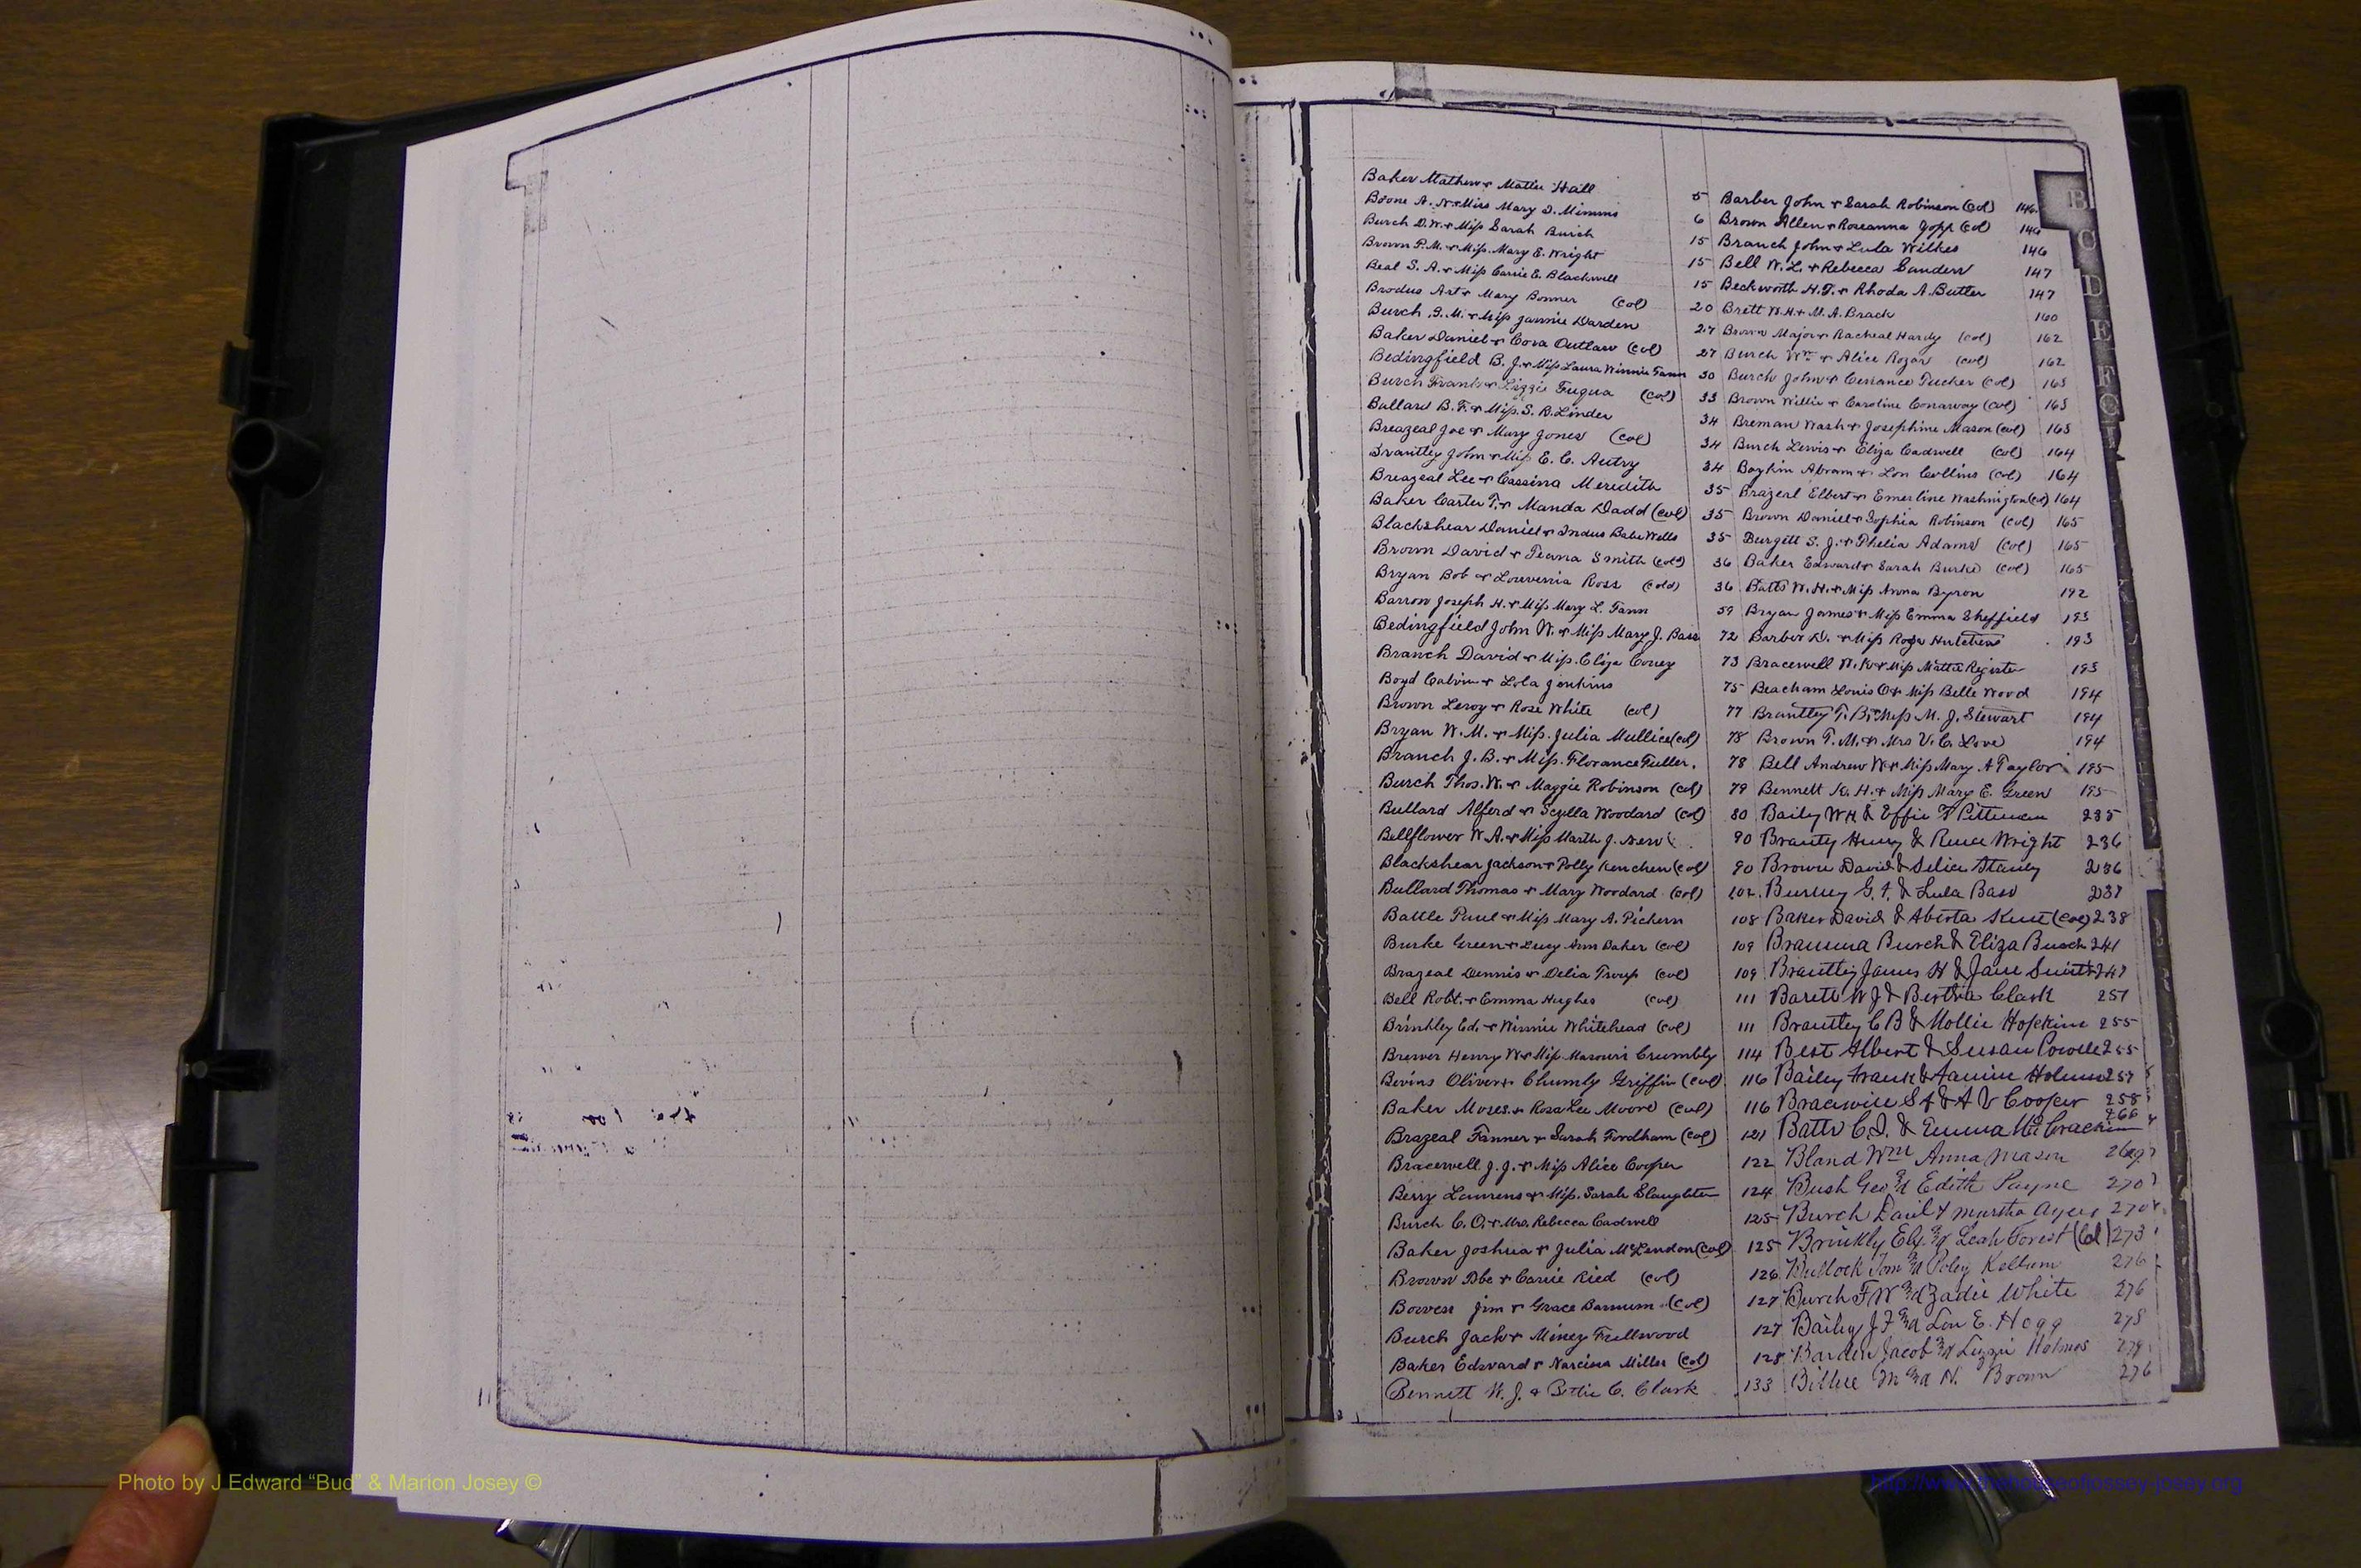 Baker Mathew & Mattie Hall 5
Boone A. N. & Miss Mary D. Mimms 6
Burch D. W. & Miss Sarah Burch 15
Brown P. M. & Miss Mary E. Wright 15
Beal S. A. & Miss Carrie E. Blackwell 15
Brodus Art & Mary Bonner (col) 20
Burch G. M. & Miss Jannie Darden 27
Baker Daniel & Cora Outlaw (col) 27
Bedingfield B. J. & Miss Laura Winnie Fann 30
Burch Frank & Lizzie Fuqua (col) 33
Ballard B. F. & Miss S. R. Linder 34
Breazeal Joe & Mary Jones (col) 34
Brantley John & Miss E. C. Autry 34
Breazeal Lee & Cassina Meredith 35
Baker Carter T. & Manda Dadd (col) 35
Blackshear Daniel & Indus Babe Wells 35
Brown David & Peana Smith (cold) 36
Bryan Bob & Louvenia Ross (cold) 36
Barron Joseph H. & Miss Mary L. Fann 59
Bedingfield John W. & Miss Mary J. Bass 72
Branch David & Miss Eliza Coney 73
Boyd Calvin & Lola Jenkins 75
Brown Leroy & Rose White (col) 77
Bryan W. M. & Miss Julia Mullice (col) 78
Branch J. B. & Miss Florance Fuller. 78
Burch Thos. W. & Maggie Robinson (col) 79
Bullard Alferd & Scylla Woodard (col) 80
Bellflower W. A. & Miss Marth J. New 90
Blackshear Jackson & Polly Kenchen (col) 90
Bullard Thomas & Mary Woodard (col) 102
Battle Paul & Miss Mary A. Pickern 108
Burke Green & Lucy Ann Baker (col) 109
Brazeal Dennis & Delia Troup (col) 109
Bell Robt. & Emma Hughes (col) 111
Brinkley Ed. & Winnie Whitehead (col) 111
Brewer Henry W. & Miss Masouri Crumbly 114
Bevins Oliver & Chumly Griffin (col) 116
Baker Moses & Rosa Lee Moore (col) 116
Brazeal Fanner & Sarah Fordham (col) 121
Bracewell J. J. & Miss Alice Cooper 122
Berry Laurens & Miss. Sarah Slaughter 124
Burch C. O. & Mrs. Rebecca Cadwell 125
Baker Joshua & Julia McLendon (col) 125
Brown Abe & Carrie Ried (col) 126
Bowen Jim & Grace Barnum (col) 127
Burch Jack & Miney Fullwood 127
Baker Edward & Narcissa Miller (col) 128
Bennett W. J. & Bettie C. Clark 133
Barber John & Sarah Robinson (col) 146
Brown Allen & Roseanna Jopp (col) 146
Branch John & Lula Wilkes 146
Bell W. L. & Rebecca Sanders 147
Beckworth H. T. & Rhoda A. Butler 147
Brett W. H. & M. A. Brack 160
Brown Major & Racheal Hardy (col) 162
Burch Wm & Alice Rozar (col) 162
Burch John & Cerrance Tucker (col) 163
Brown Willie & Caroline Conaway (col) 163
Breman Wash & Josephine Mason (col) 163
Burch Lewis & Eliza Cadwell (col) 164
Boykin Abram & Lon Collins (col) 164
Brazeal Elbert & Emerline Washington (col) 164
Brown Daniel & Sophia Robinson (col) 165
Burgett S. J. & Phelia Adams (col) 165
Baker Edward & Sarah Burke (col) 165
Batts W. H. & Miss Anna Byron 192
Bryan James & Miss Emma Sheffield 193
Barber D. & Miss Roga Hutchens 193
Bracewell W. K. & Miss Mattie Register 193
Beacham Louis O. & Miss Belle Wood 194
Brantley T. B. & Miss M. J. Stewart 194
Brown T. M. & Mrs V. C. Love 194
Bell Andrew W. & Miss Mary A Taylor 195
Bennett K. H. & Miss Mary E. Green 195
Baily W H & Effie F Pittman 235
Branty Henry & Rence Wright 236
Brown David & Selia Stanly 236
Burney G. F. & Lula Bass 237
Baker David & Aberta Kent (col) 238
Bramma Burch & Eliza Burch 241
Brantley James H & Jane Smith 247
Barett W J & Berthia Clark 251
Brantley C B & Mollie Hopkins 255
Best Albert & Susan 255
Bailey Frank & Fannie Holmes 257
Bracewill S F & A V Cooper 258
Batts C. I. & Emma McCrackin 266
Bland Wm Anna Mason 269
Bush Geo & Edith Payne 270
Burch Daniel & Martha Ayers 270
Brinkly Elg. & Leah Forest (Col) 273
Bullock Tom & Poley Kellum 276
Burch F W & Zadie White 276
Bailey J F & Lou E. Hogg 275
Barden Jacob & Luzzie Holmes 279
Billue M & N. Brown 276
B
C
D
E
F
G
Photo by J Edward “Bud” & Marion Josey ©
http://www.thehouseofjossey-josey.org